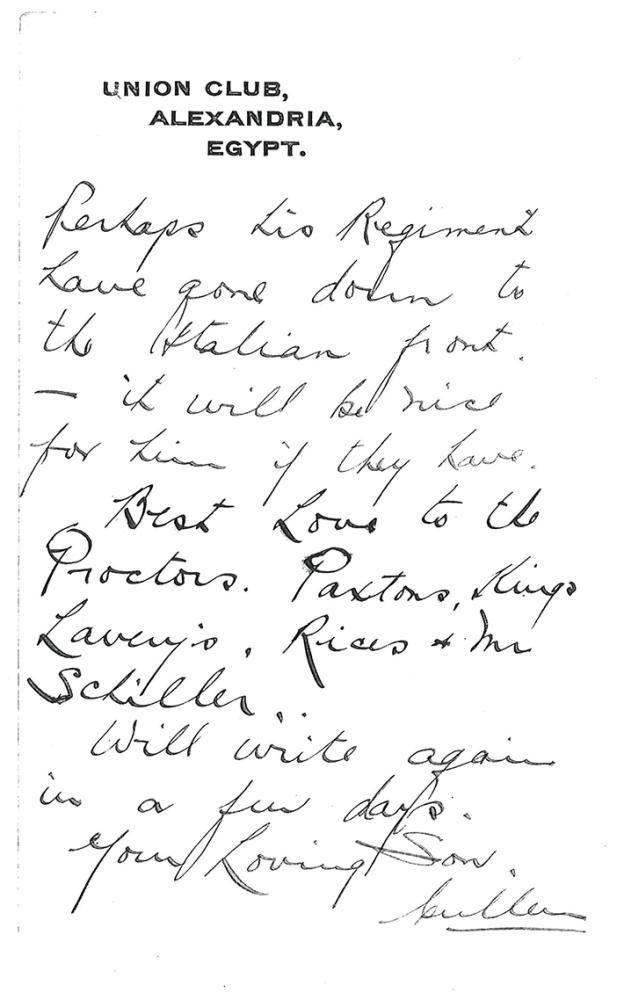 UNION CLUB,
ALEXANDRIA,
EGYPT.
Perhaps his Regiment
have gone down to
the Italian front.
— it will be nice
for him if they have.
Best Love to the
Proctors. Paxtons, Kings
Lavery's, Rices + Mr
Schiller..
Will write again
in a few days.
Your Loving Son.
Cullen